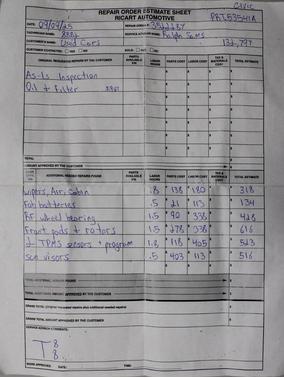 CIVIC
REPAIR ORDER ESTIMATE SHEET
RICART AUTOMOTIVE
DATE:
REPAIR ORDER #
TECHNICIAN NAME:
SERVICE ADVISOR
Ralph Sims
CUSTOMER'S NAME: Used Cars
132,797
CUSTOMER CONTACTED:
ORIGINAL REQUESTED REPAIRS BY THE CUSTOMER
PARTS AVAILABLE Y/N
LABOR HOURS
PARTS COST
LABOR COST
TAX & MATERIALS COST
TOTAL ESTIMATE
As-Is Inspection
Oil + Filter
TOTAL
AMOUNT APPROVED BY THE CUSTOMER
ADDITIONAL NEEDED REPAIRS FOUND
PARTS AVAILABLE Y/N
LABOR HOURS
PARTS COST
LABOR COST
TAX & MATERIALS COST
TOTAL ESTIMATE
Wipers, Air, Cabin .8 138 180 318
Fob batteries .5 21 113 134
RF wheel bearing 1.5 90 338 428
Front pads + rotors 1.5 278 338 616
2 TPMS sensors + program 1.8 118 405 523
Sun visors .5 403 113 516
TOTAL ADDITIONAL REPAIRS FOUND
TOTAL ADDITIONAL AMOUNT APPROVED BY THE CUSTOMER
GRAND TOTAL
GRAND TOTAL AMOUNT APPROVED BY THE CUSTOMER
SERVICE ADVISOR COMMENTS:
T 8
8
WORK APPROVED:
DATE:
TIME: